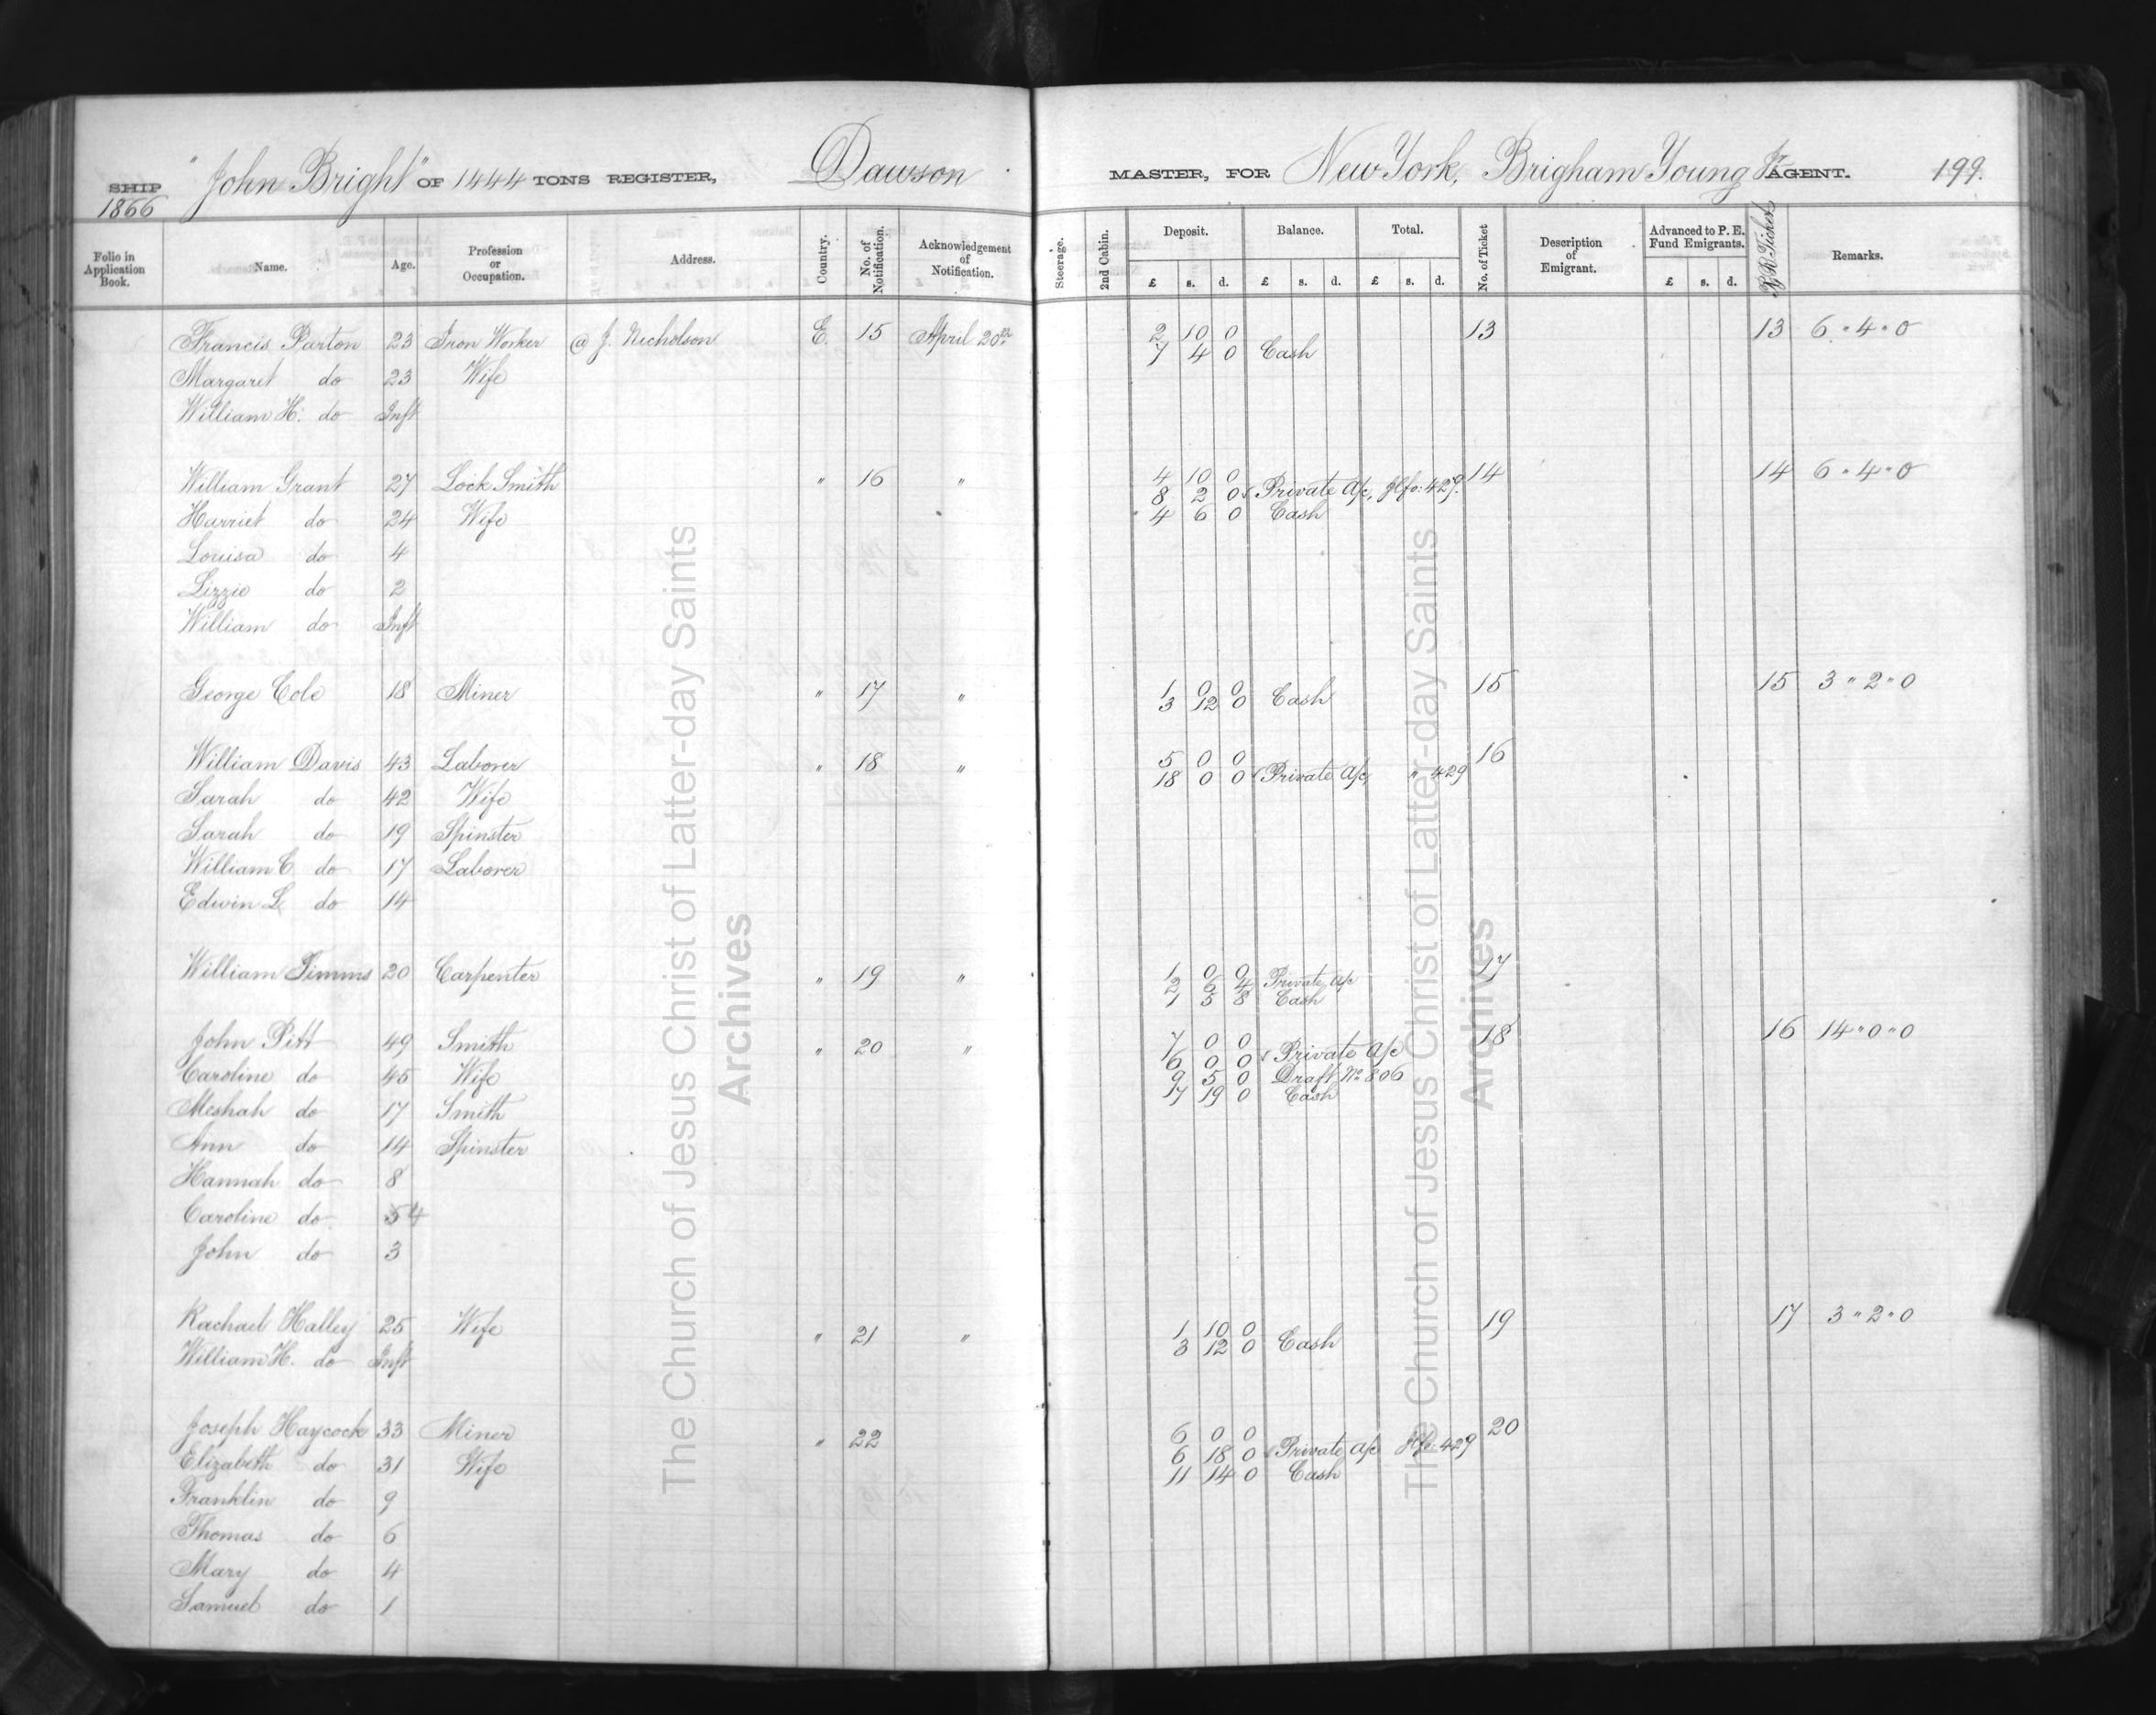 SHIP "John Bright" OF 1444 TONS REGISTER, Dawson MASTER, FOR New York, Brigham Young Jr AGENT. 199.
1866
Folio in Application Book. Name. Age. Profession or Occupation. Address. Country. No. of Notification. Acknowledgement of Notification. Steerage. 2nd Cabin. Deposit. Balance. Total. No. of Ticket Description of Emigrant. Advanced to P. E. Fund Emigrants. R R Tickets Remarks.
£ s. d. £ s. d. £ s. d. £ s. d.
Francis Parton 23 Iron Worker @ J. Nicholson E. 15 April 20th 2 10 0 13 13 6 " 4 " 0
7 4 0 Cash
Margaret do 23 Wife
William H. do Inft
William Grant 27 Lock Smith " 16 " 4 10 0 14 14 6 " 4 " 0
8 2 0 Private a/c, 429.
Harriet do 24 Wife 4 6 0 Cash
Louisa do 4
Lizzie do 2
William do Inft
George Cole 18 Miner " 17 " 1 0 0 15 15 3 " 2 " 0
3 12 0 Cash
William Davis 43 Laborer " 18 " 5 0 0 16
18 0 0 Private a/c, " 429
Sarah do 42 Wife
Sarah do 19 Spinster
William C. do 17 Laborer
Edwin L. do 14
William Timms 20 Carpenter " 19 " 1 0 0 17
2 6 4 Private a/c
1 5 8 Cash
John Pitt 49 Smith " 20 " 7 0 0 18 16 14 " 0 " 0
6 0 0 Private a/c
Caroline do 45 Wife 9 5 0 Draft No 806
Meshah do 17 Smith 17 19 0 Cash
Ann do 14 Spinster
Hannah do 8
Caroline do 5 4
John do 3
Rachael Halley 25 Wife " 21 " 1 10 0 19 17 3 " 2 " 0
3 12 0 Cash
William H. do Inft
Joseph Haycock 33 Miner " 22 6 0 0 20
6 18 0 Private a/c 429
Elizabeth do 31 Wife 11 14 0 Cash
Franklin do 9
Thomas do 6
Mary do 4
Samuel do 1
The Church of Jesus Christ of Latter-day Saints
Archives
The Church of Jesus Christ of Latter-day Saints
Archives